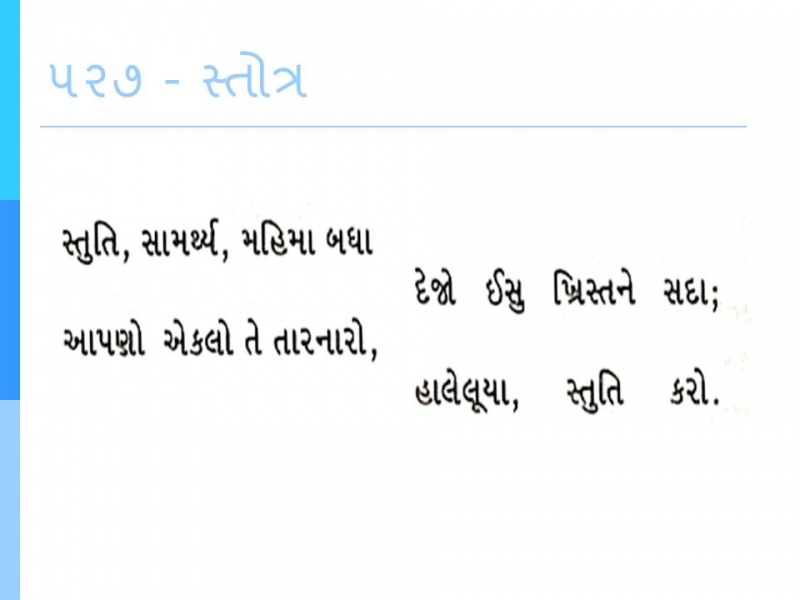 ૫૨૭ - સ્તોત્ર
સ્તુતિ, સામર્થ્ય, મહિમા બધા
દેજો ઈસુ ખ્રિસ્તને સદા;
આપણો એકલો તે તારનારો,
હાલેલૂયા, સ્તુતિ કરો.